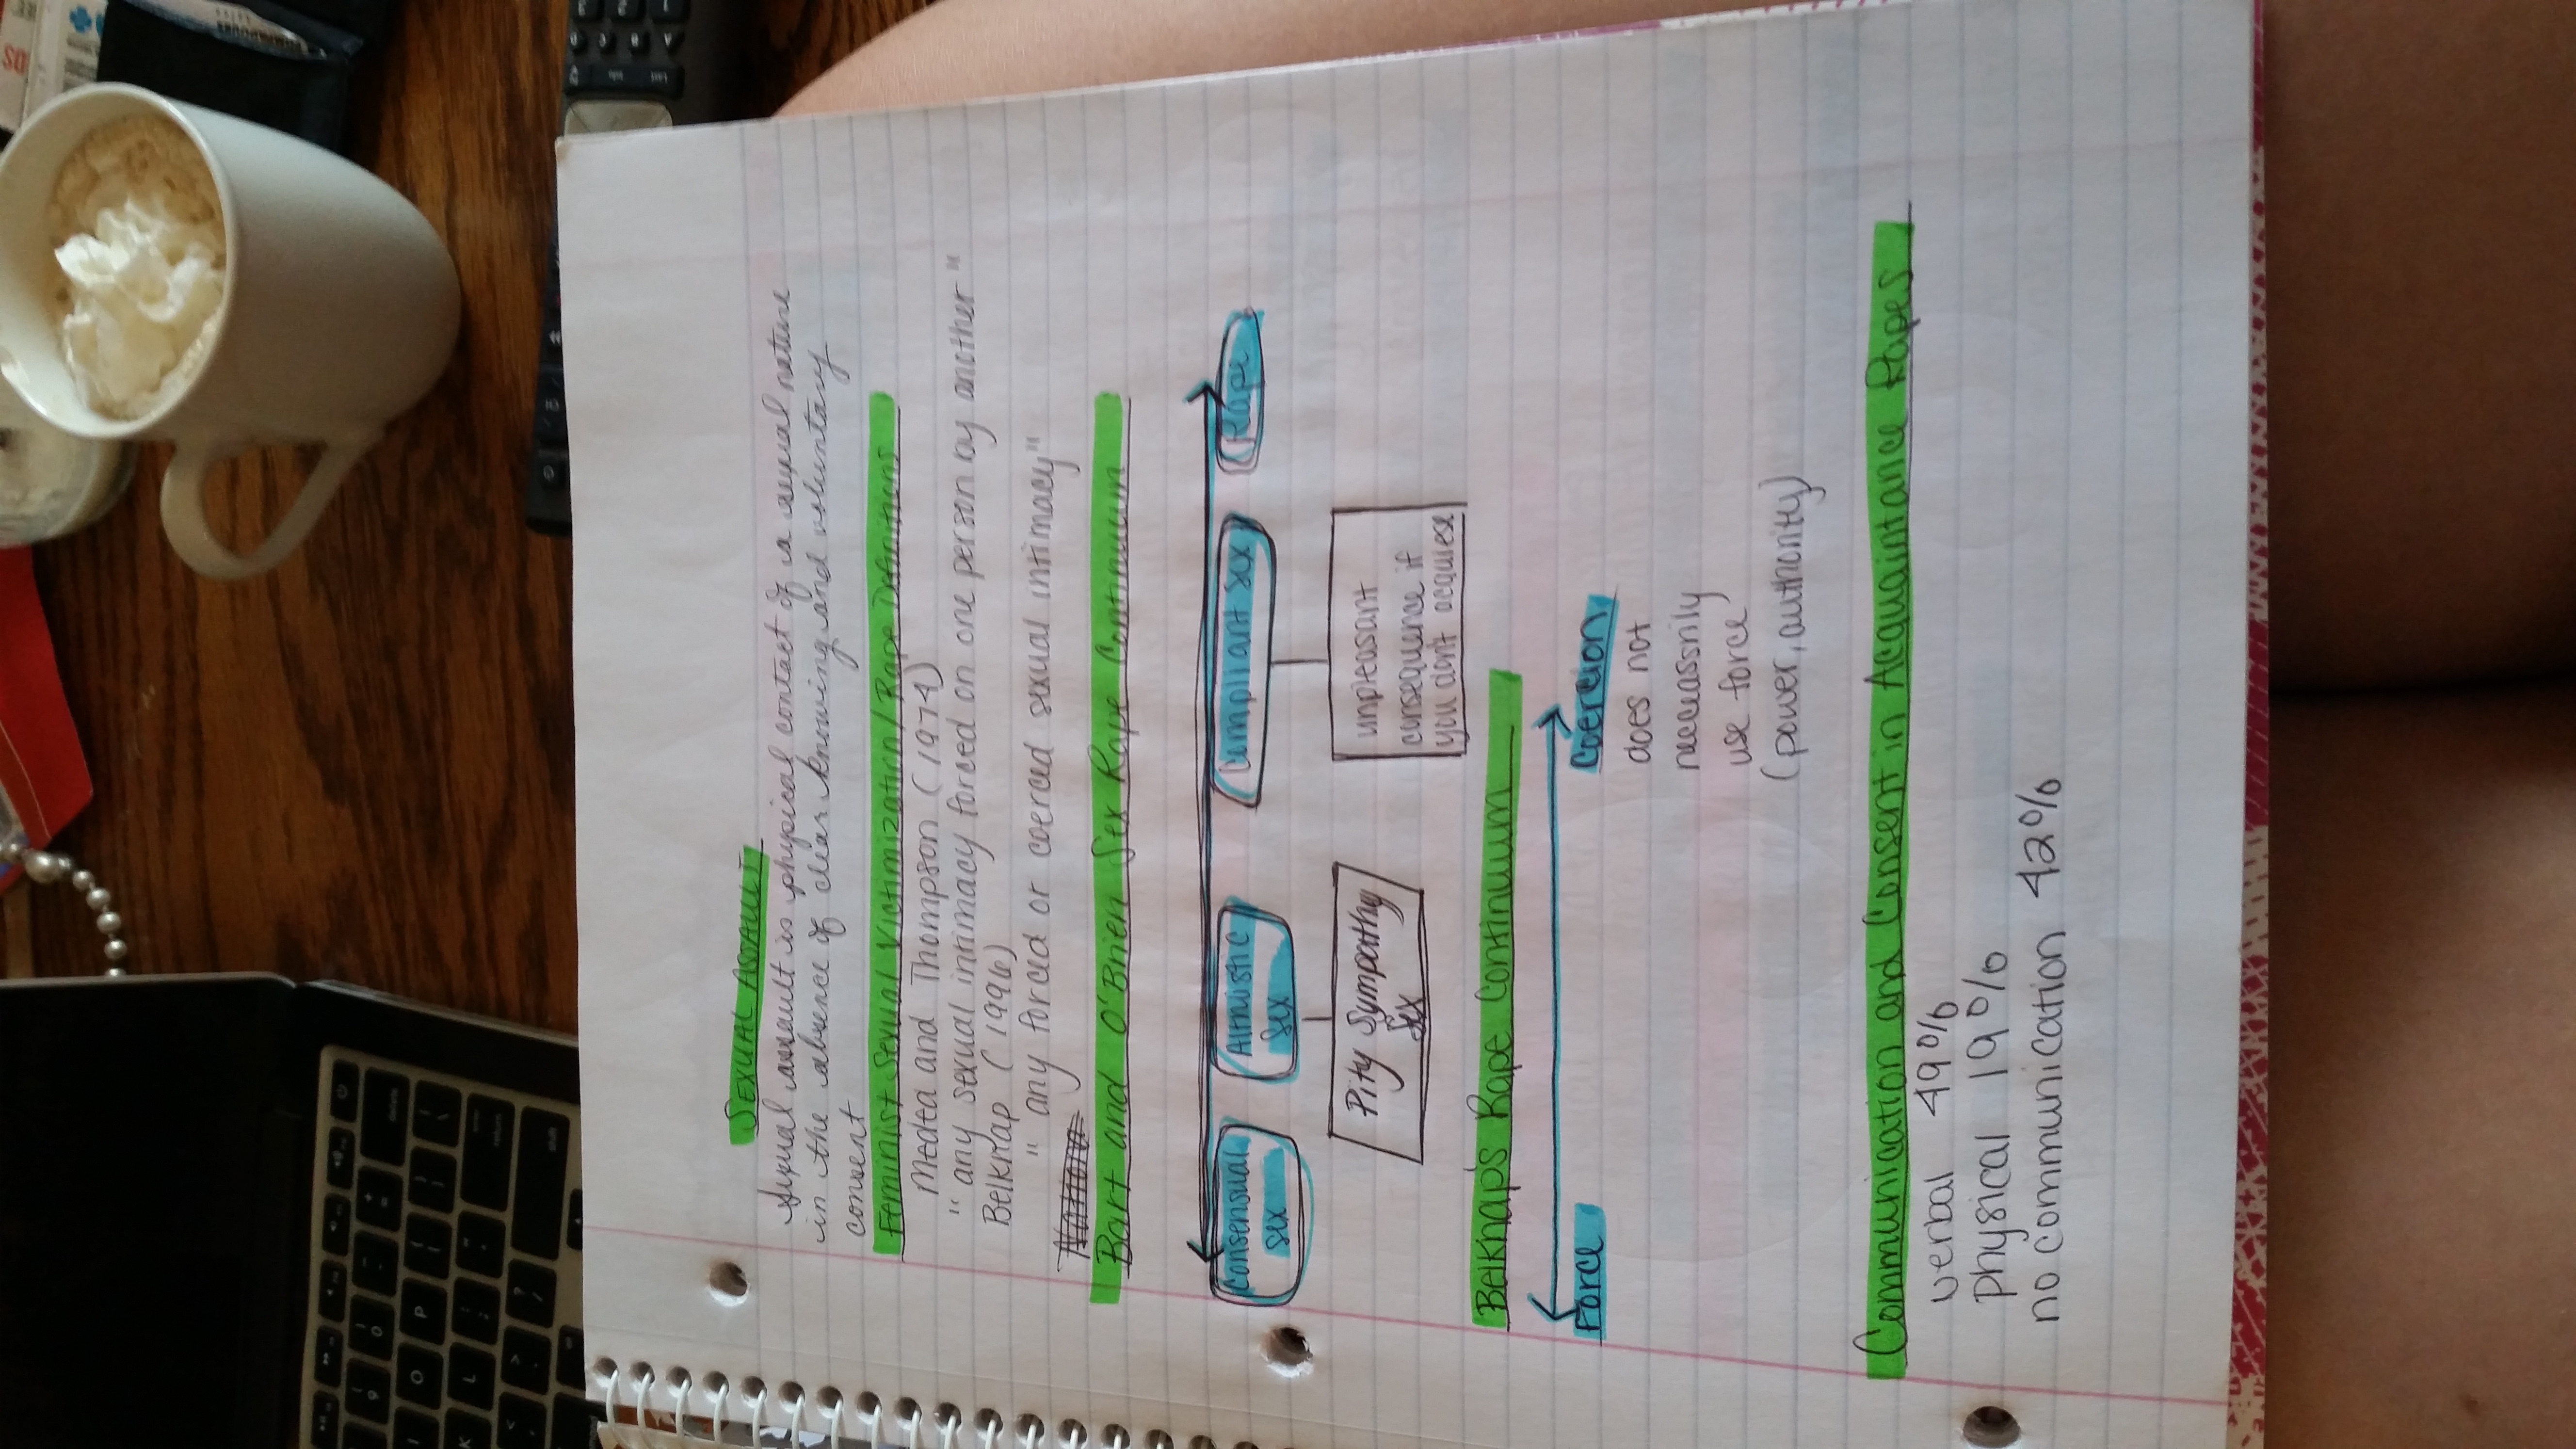 SEXUAL ASSAULT
Sexual assault is physical contact of a sexual nature
in the absence of clear knowing and voluntary
consent
Feminist Sexual Victimization/Rape Definitions
Medea and Thompson (1974)
" any sexual intimacy forced on one person by another "
Belknap (1996)
" any forced or coerced sexual intimacy"
Bart and O'Brien Sex Rape Continuum
Consensual Altruistic Compliant sex Rape
sex sex
Pity Sympathy
sex
unpleasant
consequence if
you dont acquiese
Belknap's Rape Continuum
Force Coercion
does not
neccessirily
use force
(power, authority)
Communication and Consent in Acquaintance Rapes
verbal 49%
physical 19%
no communication 42%